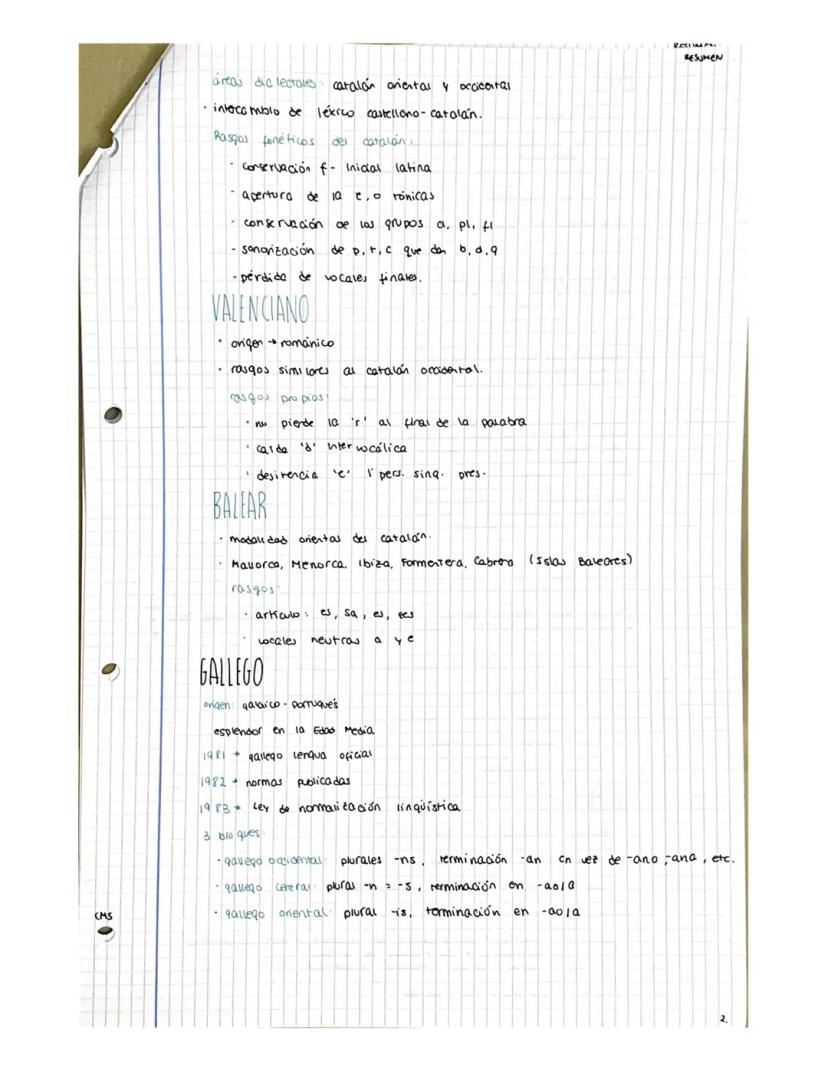 RESUMEN
áreas dialectales: catalán oriental y occidental
· intercambio de léxico castellano-catalán.
Rasgos fonéticos del catalán:
- conservación f- inicial latina
- apertura de la e, o tónicas
- conservación de los grupos cl, pl, fl
- sonorización de p, t, c que dan b, d, g
- pérdida de vocales finales.
VALENCIANO
· origen → románico
· rasgos similares al catalán occidental.
rasgos propios:
· no pierde la 'r' al final de la palabra
· caída 'd' intervocálica
· desinencia 'e' 1ª pers. sing. pres.
BALEAR
· modalidad oriental del catalán.
· Mallorca, Menorca, Ibiza, Formentera, Cabrera (Islas Baleares)
rasgos:
· artículo: es, sa, es, ses
· vocales neutras a y e
GALLEGO
origen: galaico-portugués
esplendor en la Edad Media
1981 → gallego lengua oficial
1982 → normas publicadas
1983 → Ley de normalización lingüística
3 bloques:
- gallego occidental: plurales -ns, terminación -an en vez de -ano, -ana, etc.
- gallego central: plural -n = -s, terminación en -ao/a
- gallego oriental: plural -is, terminación en -ao/a
CMS
2.